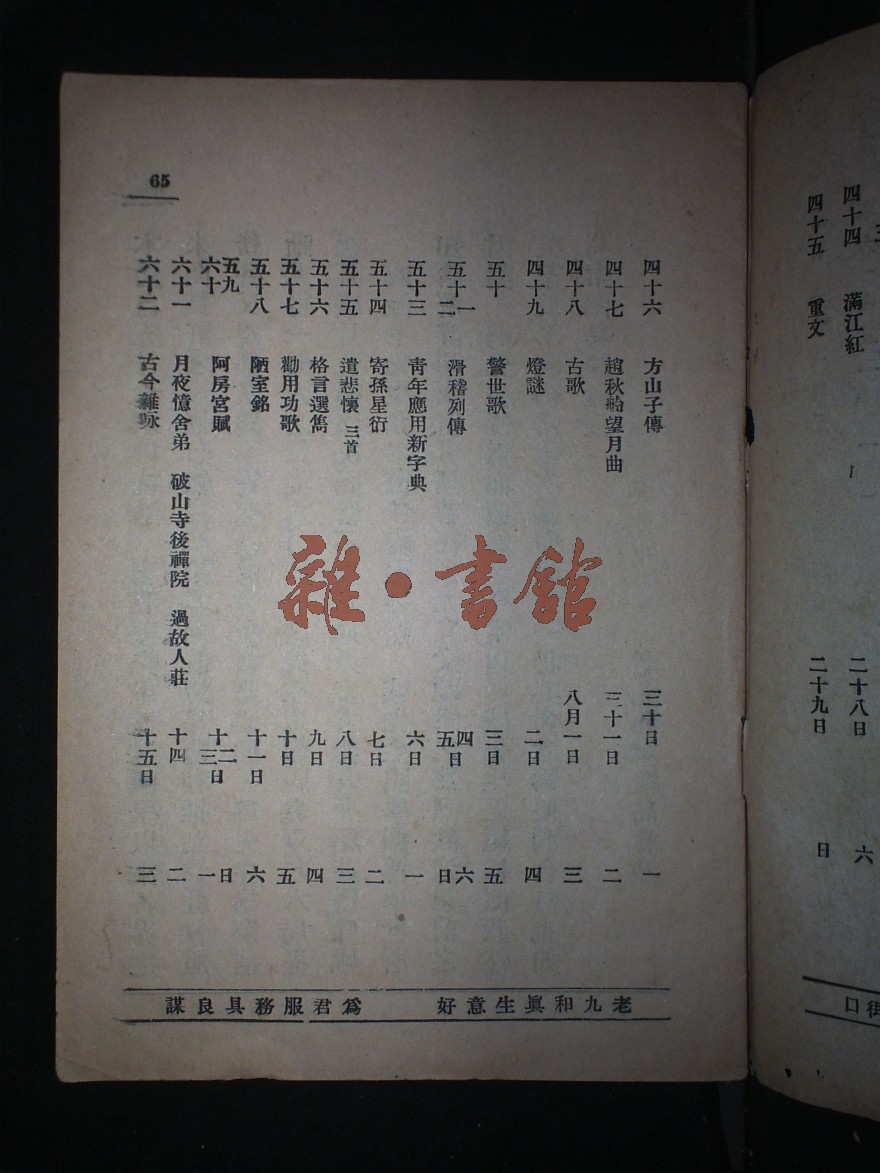 四十四　滿江紅　二十八日　六
四十五　重文　二十九日　日
街口
65
四十六　方山子傳　三十日　一
四十七　趙秋舲望月曲　三十一日　二
四十八　古歌　八月一日　三
四十九　燈謎　二日　四
五十　警世歌　三日　五
五十一二　滑稽列傳　四五日　六日
五十三　靑年應用新字典　六日　一
五十四　寄孫星衍　七日　二
五十五　遣悲懷 三首　八日　三
五十六　格言選雋　九日　四
五十七　勸用功歌　十日　五
五十八　陋室銘　十一日　六
五九六十　阿房宮賦　十二十三日　日一
六十一　月夜憶舍弟　破山寺後禪院　過故人莊　十四　二
六十二　古今雜咏　十五日　三
老九和眞生意好　爲君服務具良謀
雜·書館